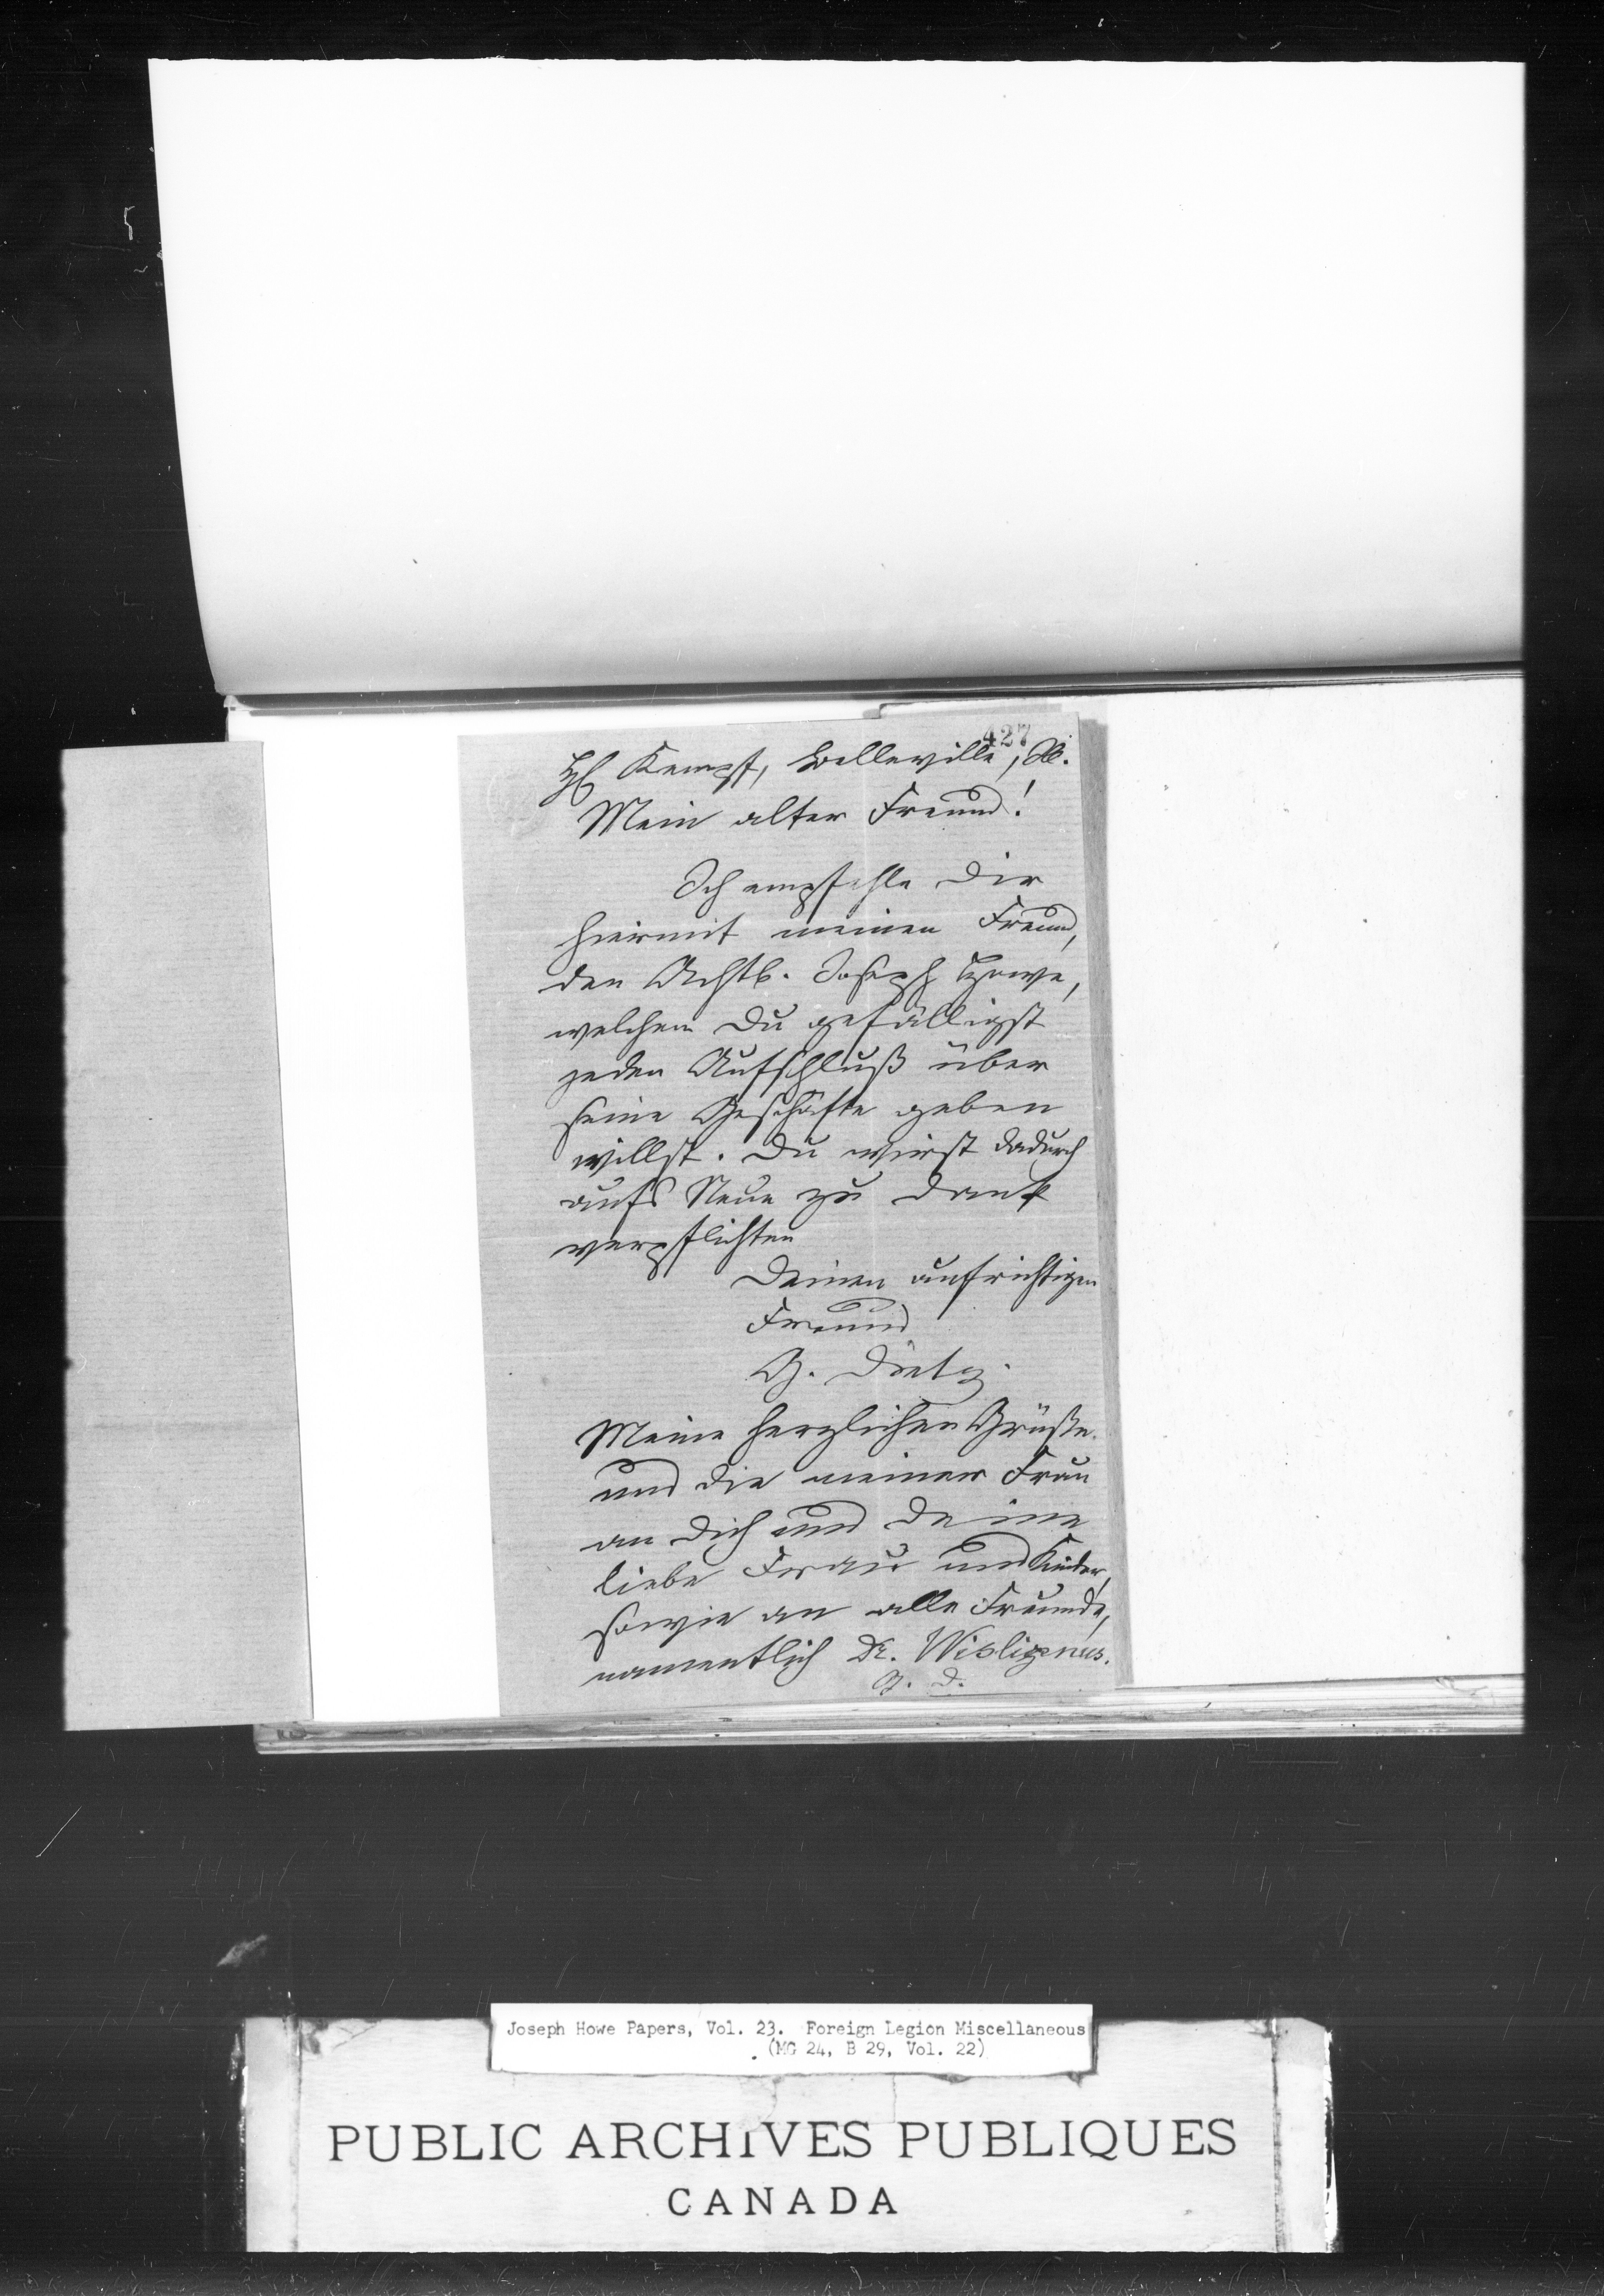 427
Hℓ Kempff, Belleville, Ill.
Mein alter Freund!
Ich empfehle Dir
hiermit meinen Freund,
den Achtb. Joseph Howe,
welchem Du gefälligst
jeden Aufschluß über
seine Geschäfte geben
willst. Du wirst dadurch
aufs Neue zu Dank
verpflichten
Deinen aufrichtigen
Freund
G. Dietz.
Meine herzlichen Grüße
und die meiner Frau
an Dich und Deine
liebe Frau und Kinder,
sowie an alle Freunde,
namentlich Dr. Wislizenus.
G. D.
Joseph Howe Papers, Vol. 23. Foreign Legion Miscellaneous
(MG 24, B 29, Vol. 22)
PUBLIC ARCHIVES PUBLIQUES
CANADA